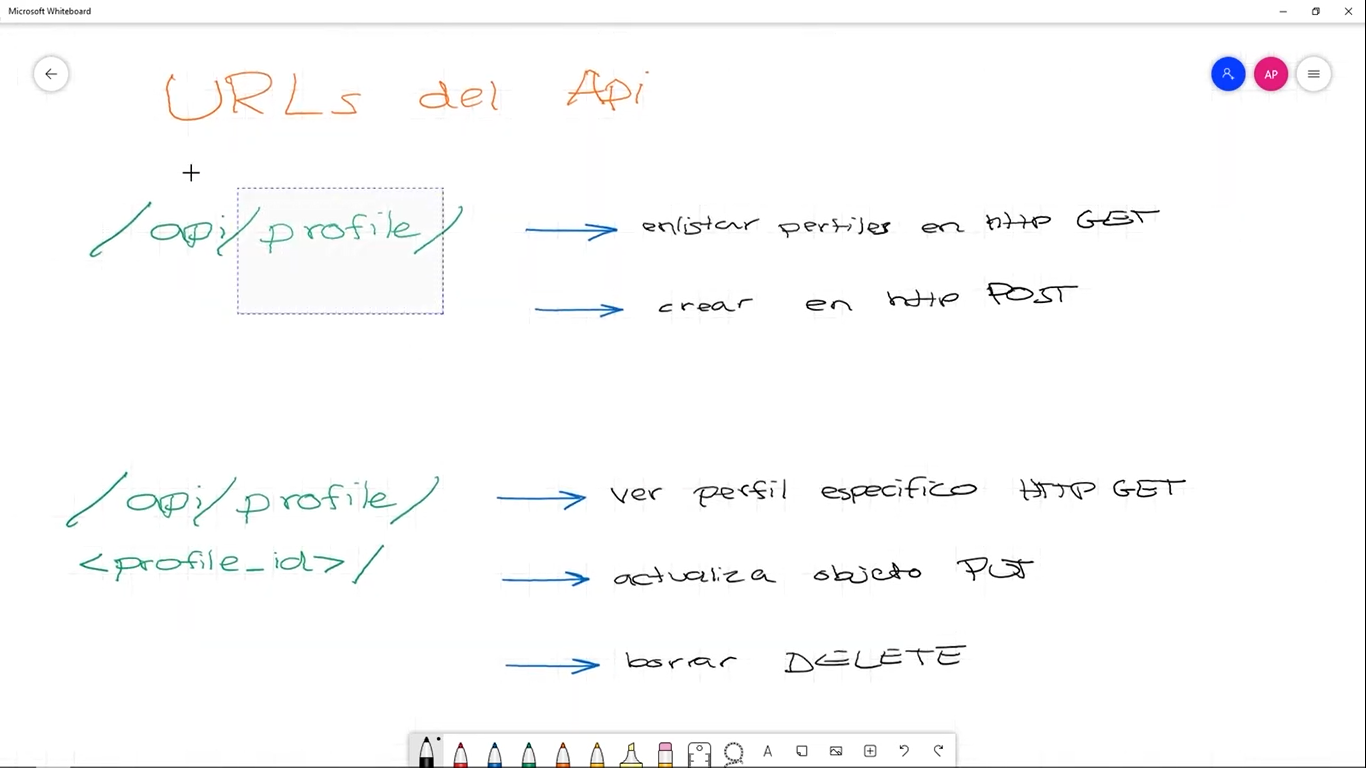 Microsoft Whiteboard
AP
URLs del Api
/api/profile/
enlistar perfiles en http GET
crear en http POST
/api/profile/
<profile_id>/
ver perfil especifico HTTP GET
actualiza objeto PUT
borrar DELETE
A